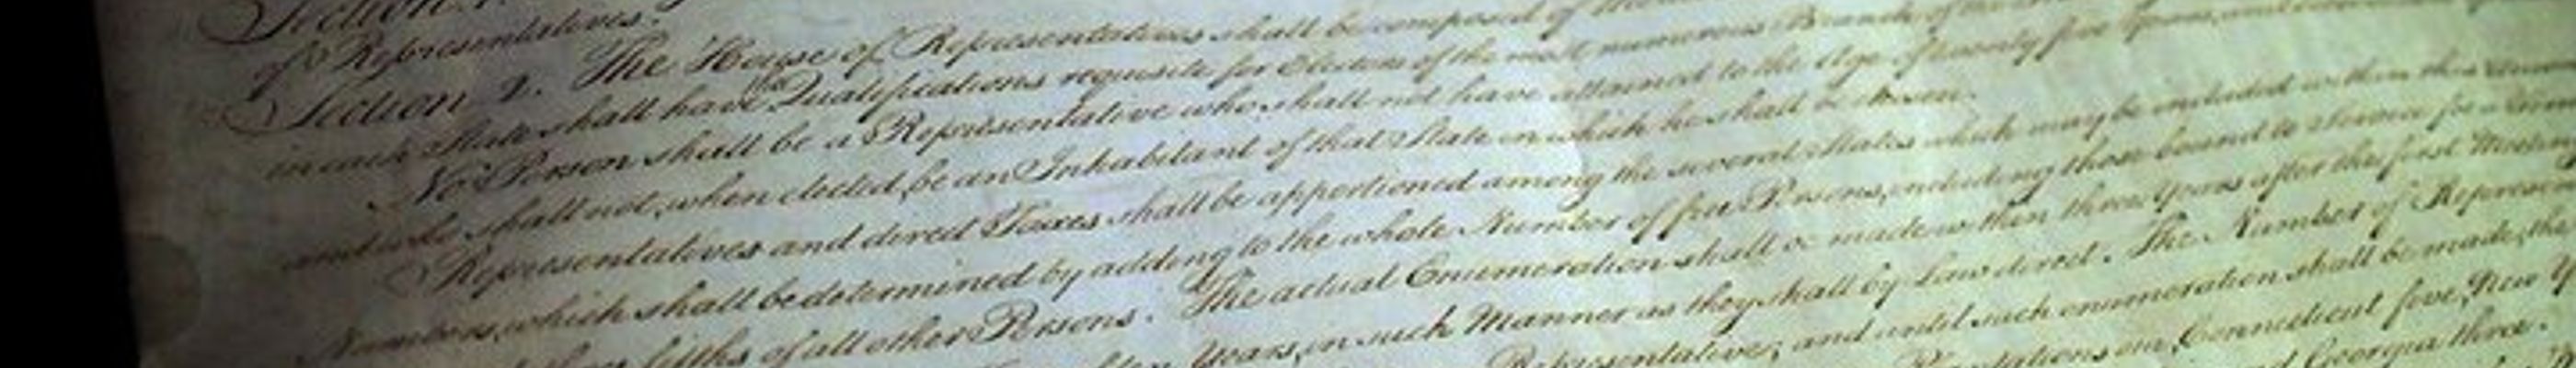 Section. 1.
of Representatives.
Section. 2. The House of Representatives shall be composed of
in each State shall have the Qualifications requisite for Electors of the most numerous Branch of the
No Person shall be a Representative who shall not have attained to the Age of twenty five Years, and
and who shall not, when elected, be an Inhabitant of that State in which he shall be chosen.
Representatives and direct Taxes shall be apportioned among the several States which may be included within this Union
Numbers, which shall be determined by adding to the whole Number of free Persons, including those bound to Service for a Term
three fifths of all other Persons. The actual Enumeration shall be made within three Years after the first Meeting
ten Years, in such Manner as they shall by Law direct. The Number of Represen
Representative; and until such enumeration shall be made, the
Plantations one, Connecticut five, New Y
and Georgia three.